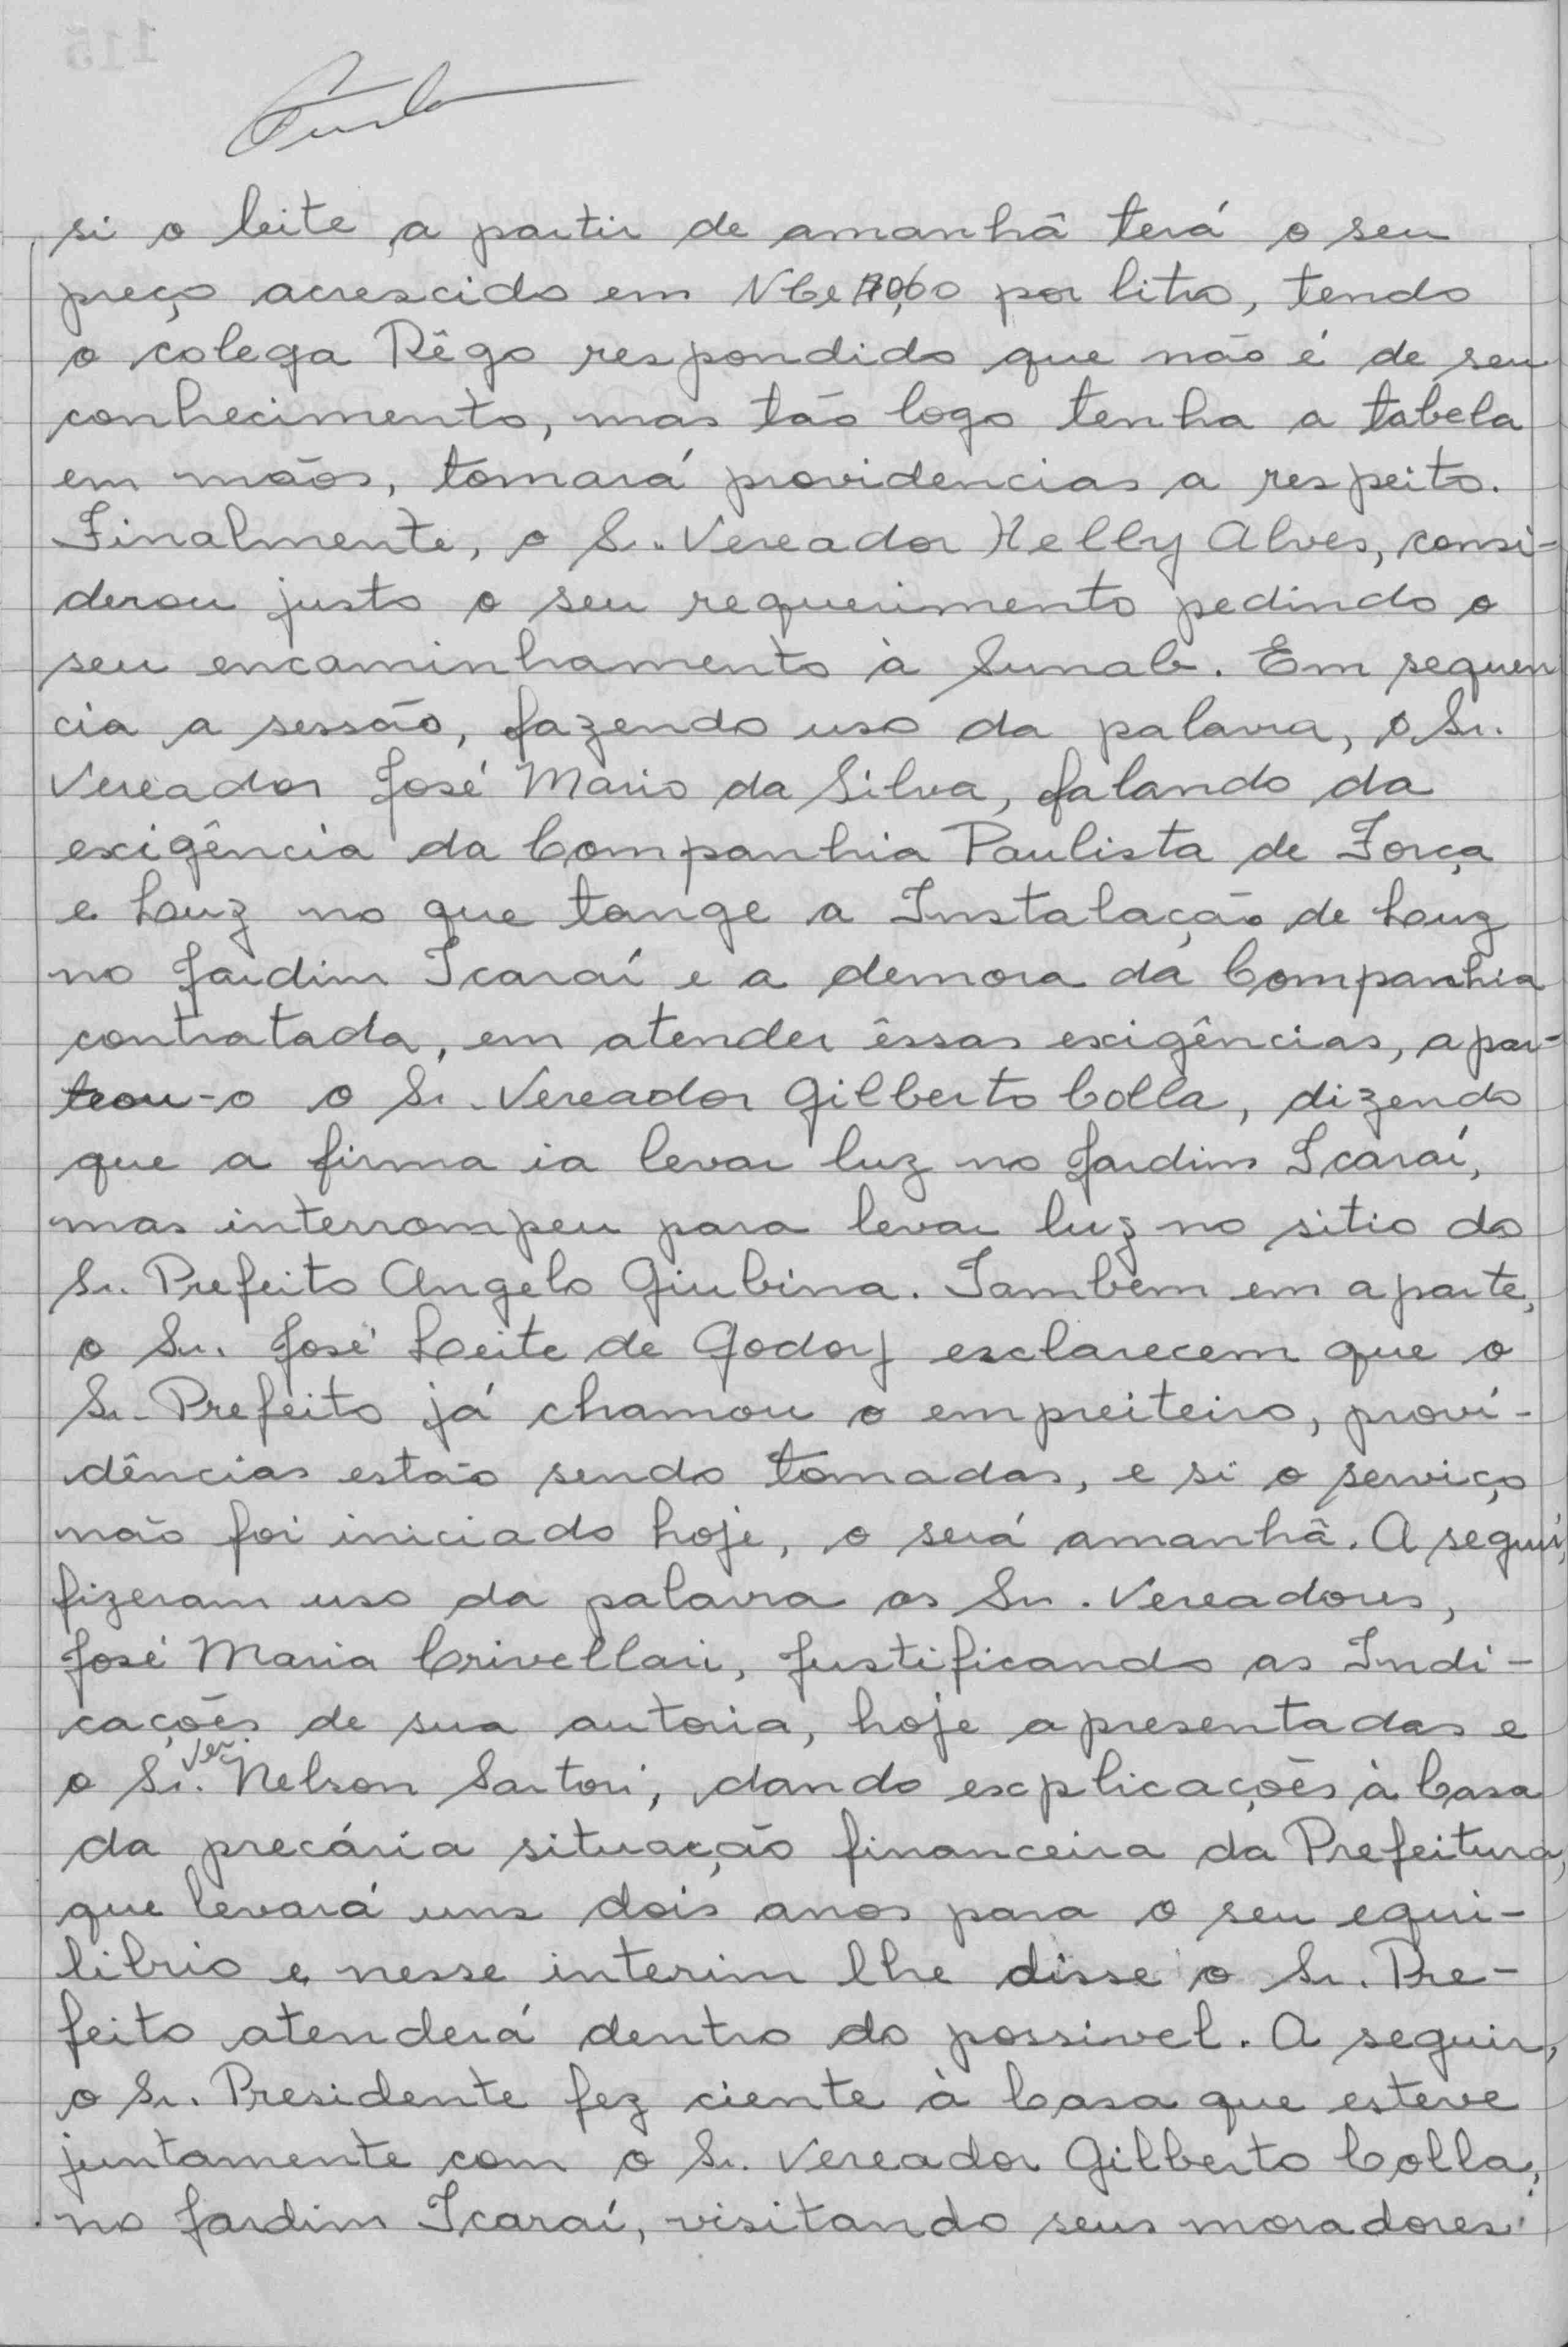 si o leite a partir de amanhã terá o seu
preço acrescido em por litro, tendo
o colega Rêgo respondido que não é de seu
conhecimento, mas tão logo tenha a tabela
em mãos, tomará providencias a respeito.
Finalmente, o Sr. Vereador Helly Alves, consi-
derou justo o seu requerimento pedindo o
seu encaminhamento à Sunab. Em sequen
cia a sessão, fazendo uso da palavra, o Sr.
Vereador José Mario da Silva, falando da
exigência da Companhia Paulista de Força
e Luz no que tange a Instalação de Luz
no Jardim Icaraí e a demora da Companhia
contratada, em atender êssas exigências, apar-
teou-o o Sr. Vereador Gilberto Colla, dizendo
que a firma ia levar luz no Jardim Icaraí,
mas interrompeu para levar luz no sitio do
Sr. Prefeito Angelo Giubina. Tambem em aparte,
o Sr. José Leite de Godoy esclarecem que o
Sr. Prefeito já chamou o empreiteiro, provi-
dências estão sendo tomadas, e si o serviço
não foi iniciado hoje, o será amanhã. A seguir,
fizeram uso da palavra os Srs. Vereadores,
José Maria Crivellari, Justificando as Indi-
cações de sua autoria, hoje apresentadas e
o Sr. Ver. Nelson Sartori, dando explicações à Casa
da precária situação financeira da Prefeitura,
que levará uns dois anos para o seu equi-
librio e nesse interim lhe disse o Sr. Pre-
feito atenderá dentro do possivel. A seguir,
o Sr. Presidente fez ciente à Casa que esteve
juntamente com o Sr. Vereador Gilberto Colla,
no Jardim Icaraí, visitando seus moradores